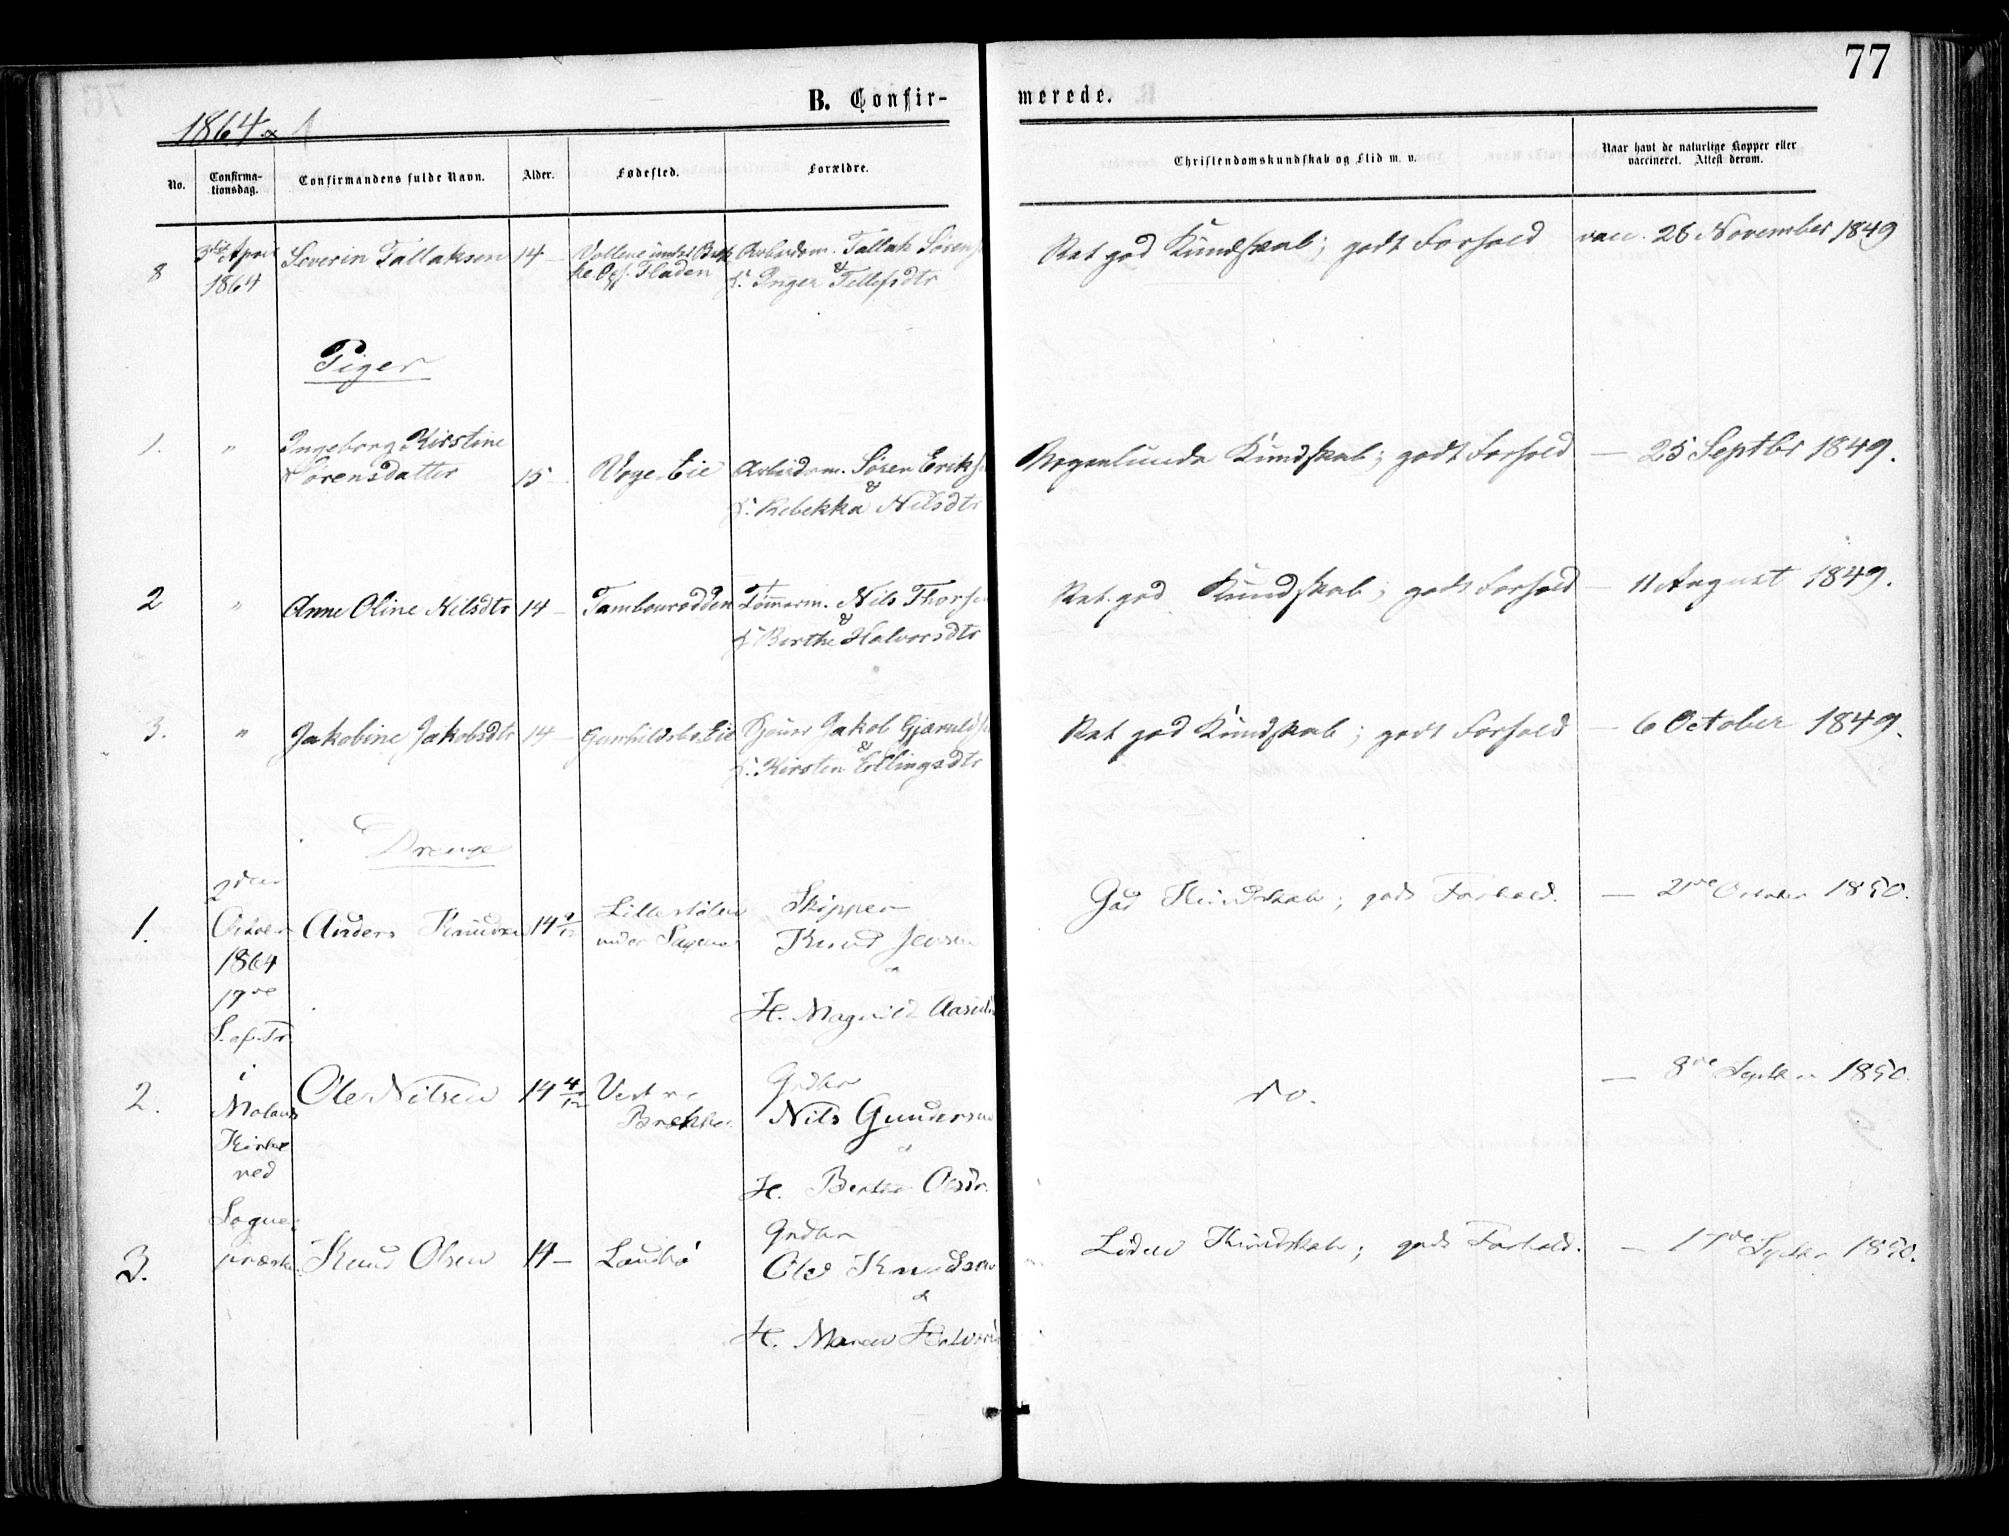 77
B. Confir- merede.
1864
No.
Confirma-
tionsdag.
Confirmandens fulde Navn.
Alder.
Fødested.
Forældre.
Christendomskundskab og Flid m. v.
Naar havt de naturlige Kopper eller
vaccineret. Attest derom.
8
3die April
1864
Severin Tallaksen
14 —
Arbeidsm. Tallak Sørens
&
K. Inger Tellefsdtr
Ret god Kundskab; godt Forhold
vacc. 26 November 1849
Piger
1.
"
Ingeborg Kirstine
Sørensdatter
15
Voge Eie
Arbeidsm. Søren Eriks
&
K. Rebekka Nilsdtr
Kundskab; godt Forhold
— 25 Septbr 1849.
2
"
Anne Oline Nilsdtr
14 —
Tambourodden
Tømmerm. Nils Thors
&
K. Berthe Halvorsdtr
Ret god Kundskab; godt Forhold
— 11 August 1849.
3.
"
Jakobine Jakobsdtr
14 —
Gunhildsbo Eie
Jakob Gjeruld
&
K. Kirsten Ellingsdtr
Ret god Kundskab; godt Forhold
— 6 October 1849.
Drenge
1.
2den
October
1864
17de
S. af. Tr.
i
Molans
Kirke
ved
Sogne-
præsten
Anders Knudsen
14 9/12
Lillestølen
under
Skipper
Knud Jensen
H. Magnild
God Kundskab; godt Forhold.
— 2den October 1850.
2.
Ole Nilsen
14 4/12
Vestre
Brække
Grdbr
Nils Gundersen
&
H. Berthe Olsdr.
do.
— 8de Septbr 1850.
3.
Knud Olsen
14 —
Landbø
Grdbr
Ole Knudsen
&
H. Maren Halvors
Liden Kundskab; godt Forhold.
— 17de Septbr 1850.